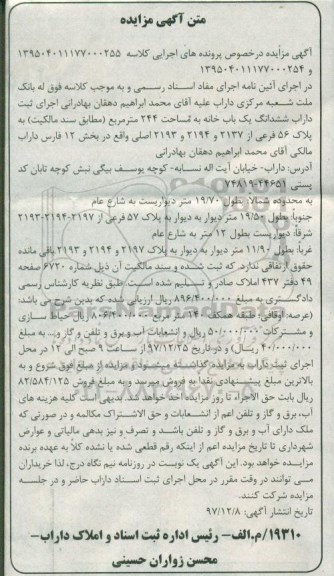 متن آگهی مزایده
آگهی مزایده درخصوص پرونده های اجرایی کلاسه ۱۳۹۵۰۴۰۱۱۱۷۷۰۰۰۲۵۵
و ۱۳۹۵۰۴۰۱۱۱۷۷۰۰۰۲۵۴
در اجرای آئین نامه اجرای مفاد اسناد رسمی و به موجب کلاسه فوق له بانک
ملت شعبه مرکزی داراب علیه آقای محمد ابراهیم دهقان بهادرانی اجرای ثبت
داراب ششدانگ یک باب خانه به مساحت ۲۴۴ مترمربع (مطابق سند مالکیت) به
پلاک ۵۶ فرعی از ۲۱۳۷ و ۲۱۹۴ و ۲۱۹۳ اصلی واقع در بخش ۱۲ فارس داراب
مالکی آقای محمد ابراهیم دهقان بهادرانی
آدرس: داراب- خیابان آیت اله نسابه- کوچه یوسف بیگی نبش کوچه تابان کد
پستی ۲۴۶۵۱-۷۴۸۱۹
به محدوده شمالا: بطول ۱۹/۷۰ متر دیواریست به شارع عام
جنوبا: بطول ۱۹/۵۰ متر دیوار به دیوار به پلاک ۵۷ فرعی از ۲۱۹۷-۲۱۹۴-۲۱۹۳
شرقا: دیواریست بطول ۱۲ متر به شارع عام
غربا: بطول ۱۱/۹۰ متر دیوار به دیوار به پلاک ۲۱۹۷ و ۲۱۹۴ و ۲۱۹۳ باقی مانده
حقوق ارتفاقی ندارد. که ثبت شده و سند مالکیت آن ذیل شماره ۶۷۲۰ صفحه
۴۹ دفتر ۴۳۷ املاک صادر و تسلیم شده است. طبق نظریه کارشناس رسمی
دادگستری به مبلغ ۸۹۶/۴۰۰/۰۰۰ ریال ارزیابی شده که بدین شرح می باشد:
(عرصه: اوقافی طبقه همکف ۱۲۴ متر مربع ۸۰۶/۴۰۰/۰۰۰ ریال حیاط سازی
و مشترکات ۵۰/۰۰۰/۰۰۰ ریال و انشعابات آب و برق و تلفن و گاز و... به مبلغ
۴۰/۰۰۰/۰۰۰ ریال) و در تاریخ ۹۷/۱۲/۲۵ از ساعت ۹ صبح الی ۱۲ در محل
اجرای ثبت داراب به مزایده گذاشته می شود و مزایده از مبلغ فوق شروع و به
بالاترین مبلغ پیشنهادی نقدا به فروش میرسد و به مبلغ فروش ۸۲/۵۸۴/۱۲۵
ریال بابت حق الاجراء تا روز مزایده اخذ خواهد شد. بدیهی است کلیه هزینه های
آب، برق و گاز و تلفن اعم از انشعابات و حق الاشتراک مکالمه و در صورتی که
ملک دارای آب و برق و گاز و تلفن باشد و تصرف و نیز بدهی مالیاتی و عوارض
شهرداری تا تاریخ مزایده اعم از اینکه رقم قطعی شده یا نشده کلا به عهده برنده
مزایده خواهد بود. این آگهی یک نوبت در روزنامه نیم نگاه درج، لذا خریداران
می توانند در وقت مقرر در محل اجرای ثبت اسناد داراب حاضر و در جلسه
مزایده شرکت کنند.
تاریخ انتشار آگهی: ۹۷/۱۲/۸
۱۹۳۱۰/م.الف- رئیس اداره ثبت اسناد و املاک داراب-
محسن زواران حسینی